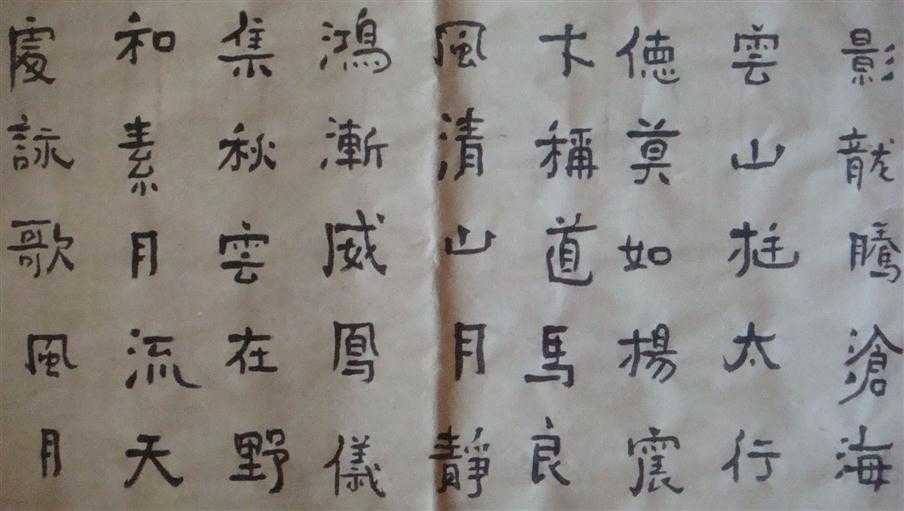 影龍騰滄海
雲山太行
德莫如楊震
才稱道馬良
風清山月靜
鴻漸威鳳儀
集秋雲在野
和素月流天
處詠歌風月